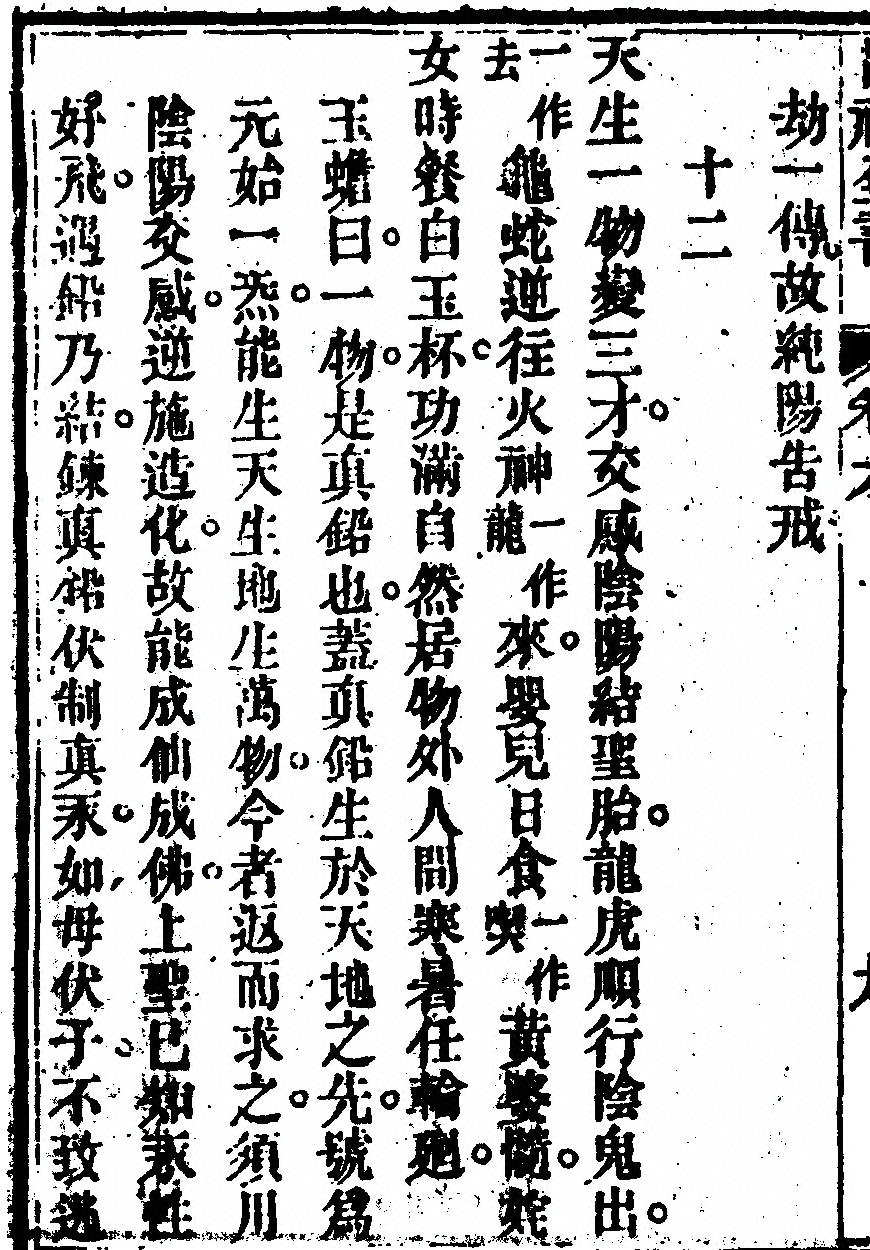 劫一傳故純陽告戒
十二
天生一物變三才交感陰陽結聖胎龍虎順行陰鬼出
一作去龜蛇逆往火神一作龍來嬰兒日食一作喫黃婆髓姹
女時餐白玉杯功滿自然居物外人間寒暑任輪廻
玉蟾曰一物是真鉛也蓋真鉛生於天地之先號為
元始一炁能生天生地生萬物今者返而求之須用
陰陽交感逆施造化故能成仙成佛上聖已知汞性
好飛遇鉛乃結鍊真鉛伏制真汞如母伏子不致逃